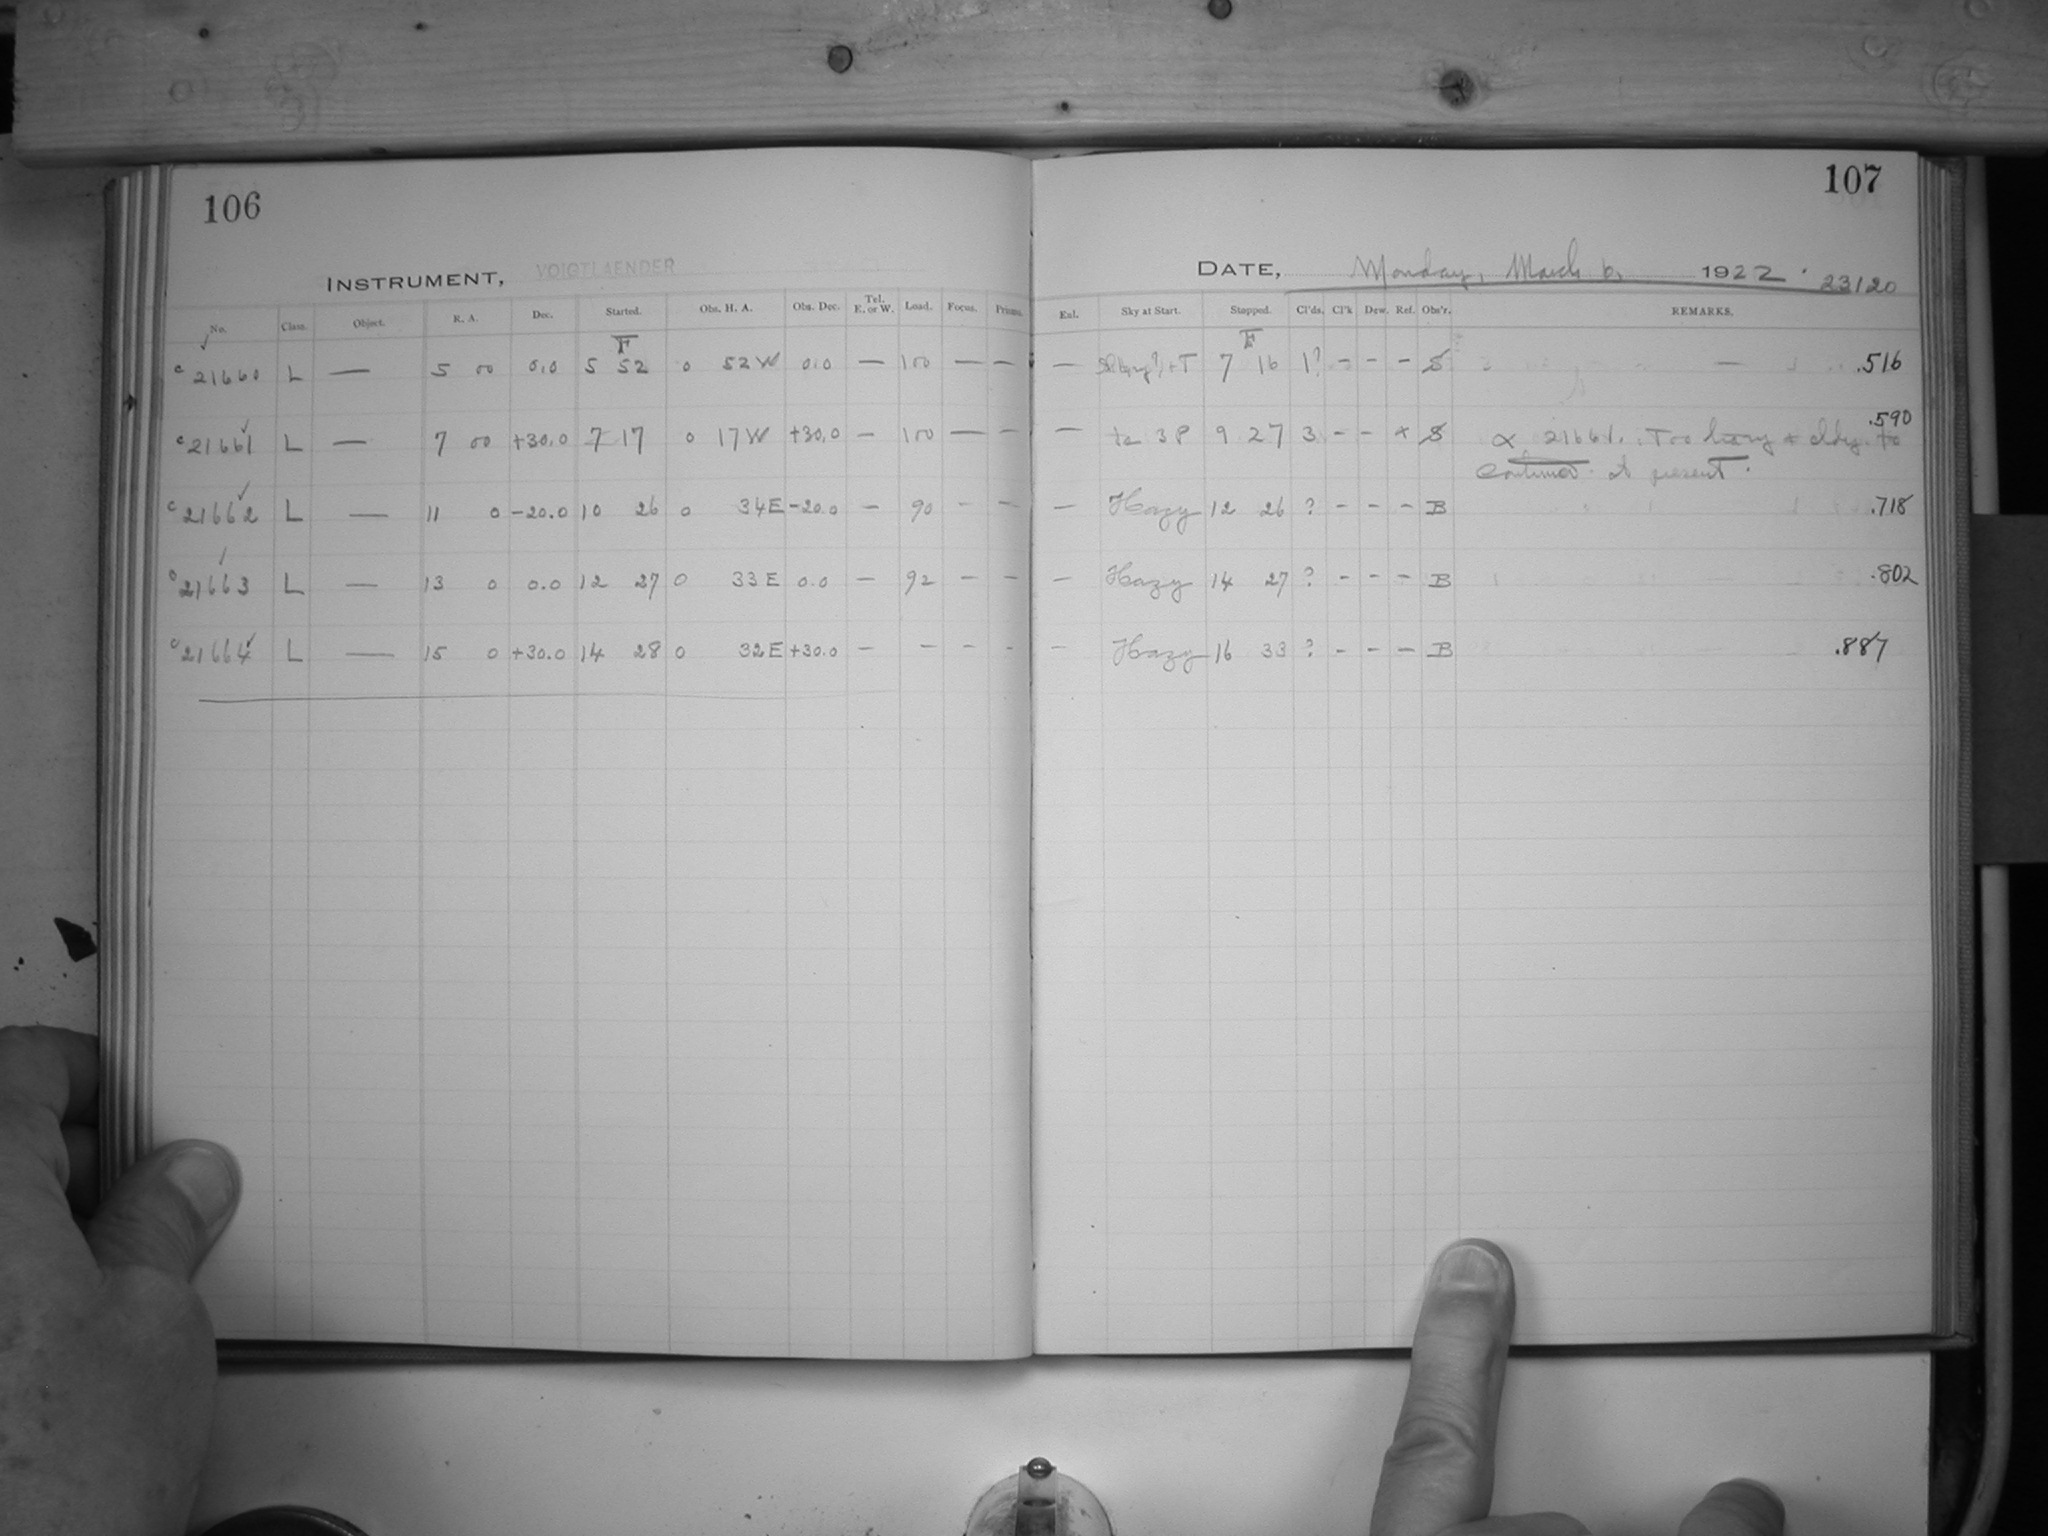 106
INSTRUMENT, VOIGTLAENDER
No. Class. Object. R. A. Dec. Started. Obs. H. A. Obs. Dec. Tel. E. or W. Load. Focus. Prisms.
F
c 21660 L — 5 00 0.0 5 52 0 52 W 0.0 — 100 — —
c 21661 L — 7 00 +30.0 7 17 0 17 W +30.0 — 100 — —
c 21662 L — 11 0 -20.0 10 26 0 34 E -20.0 — 90 - -
c 21663 L — 13 0 0.0 12 27 0 33 E 0.0 — 92 - -
c 21664 L — 15 0 +30.0 14 28 0 32 E +30.0 — - - -
107
DATE, Monday, March 6, 1922. 23120
Exl. Sky at Start. Stopped. Cl'ds. Cl'k Dew. Ref. Obs'r. REMARKS.
F
— + T 7 16 1? - - - S — .516
— to 3 P 9 27 3 - - * S .590
α 21661. Too hazy + cldy. to
continue at present.
— Hazy 12 26 ? - - - B .718
— Hazy 14 27 ? - - - B .802
— Hazy 16 33 ? - - - B .887